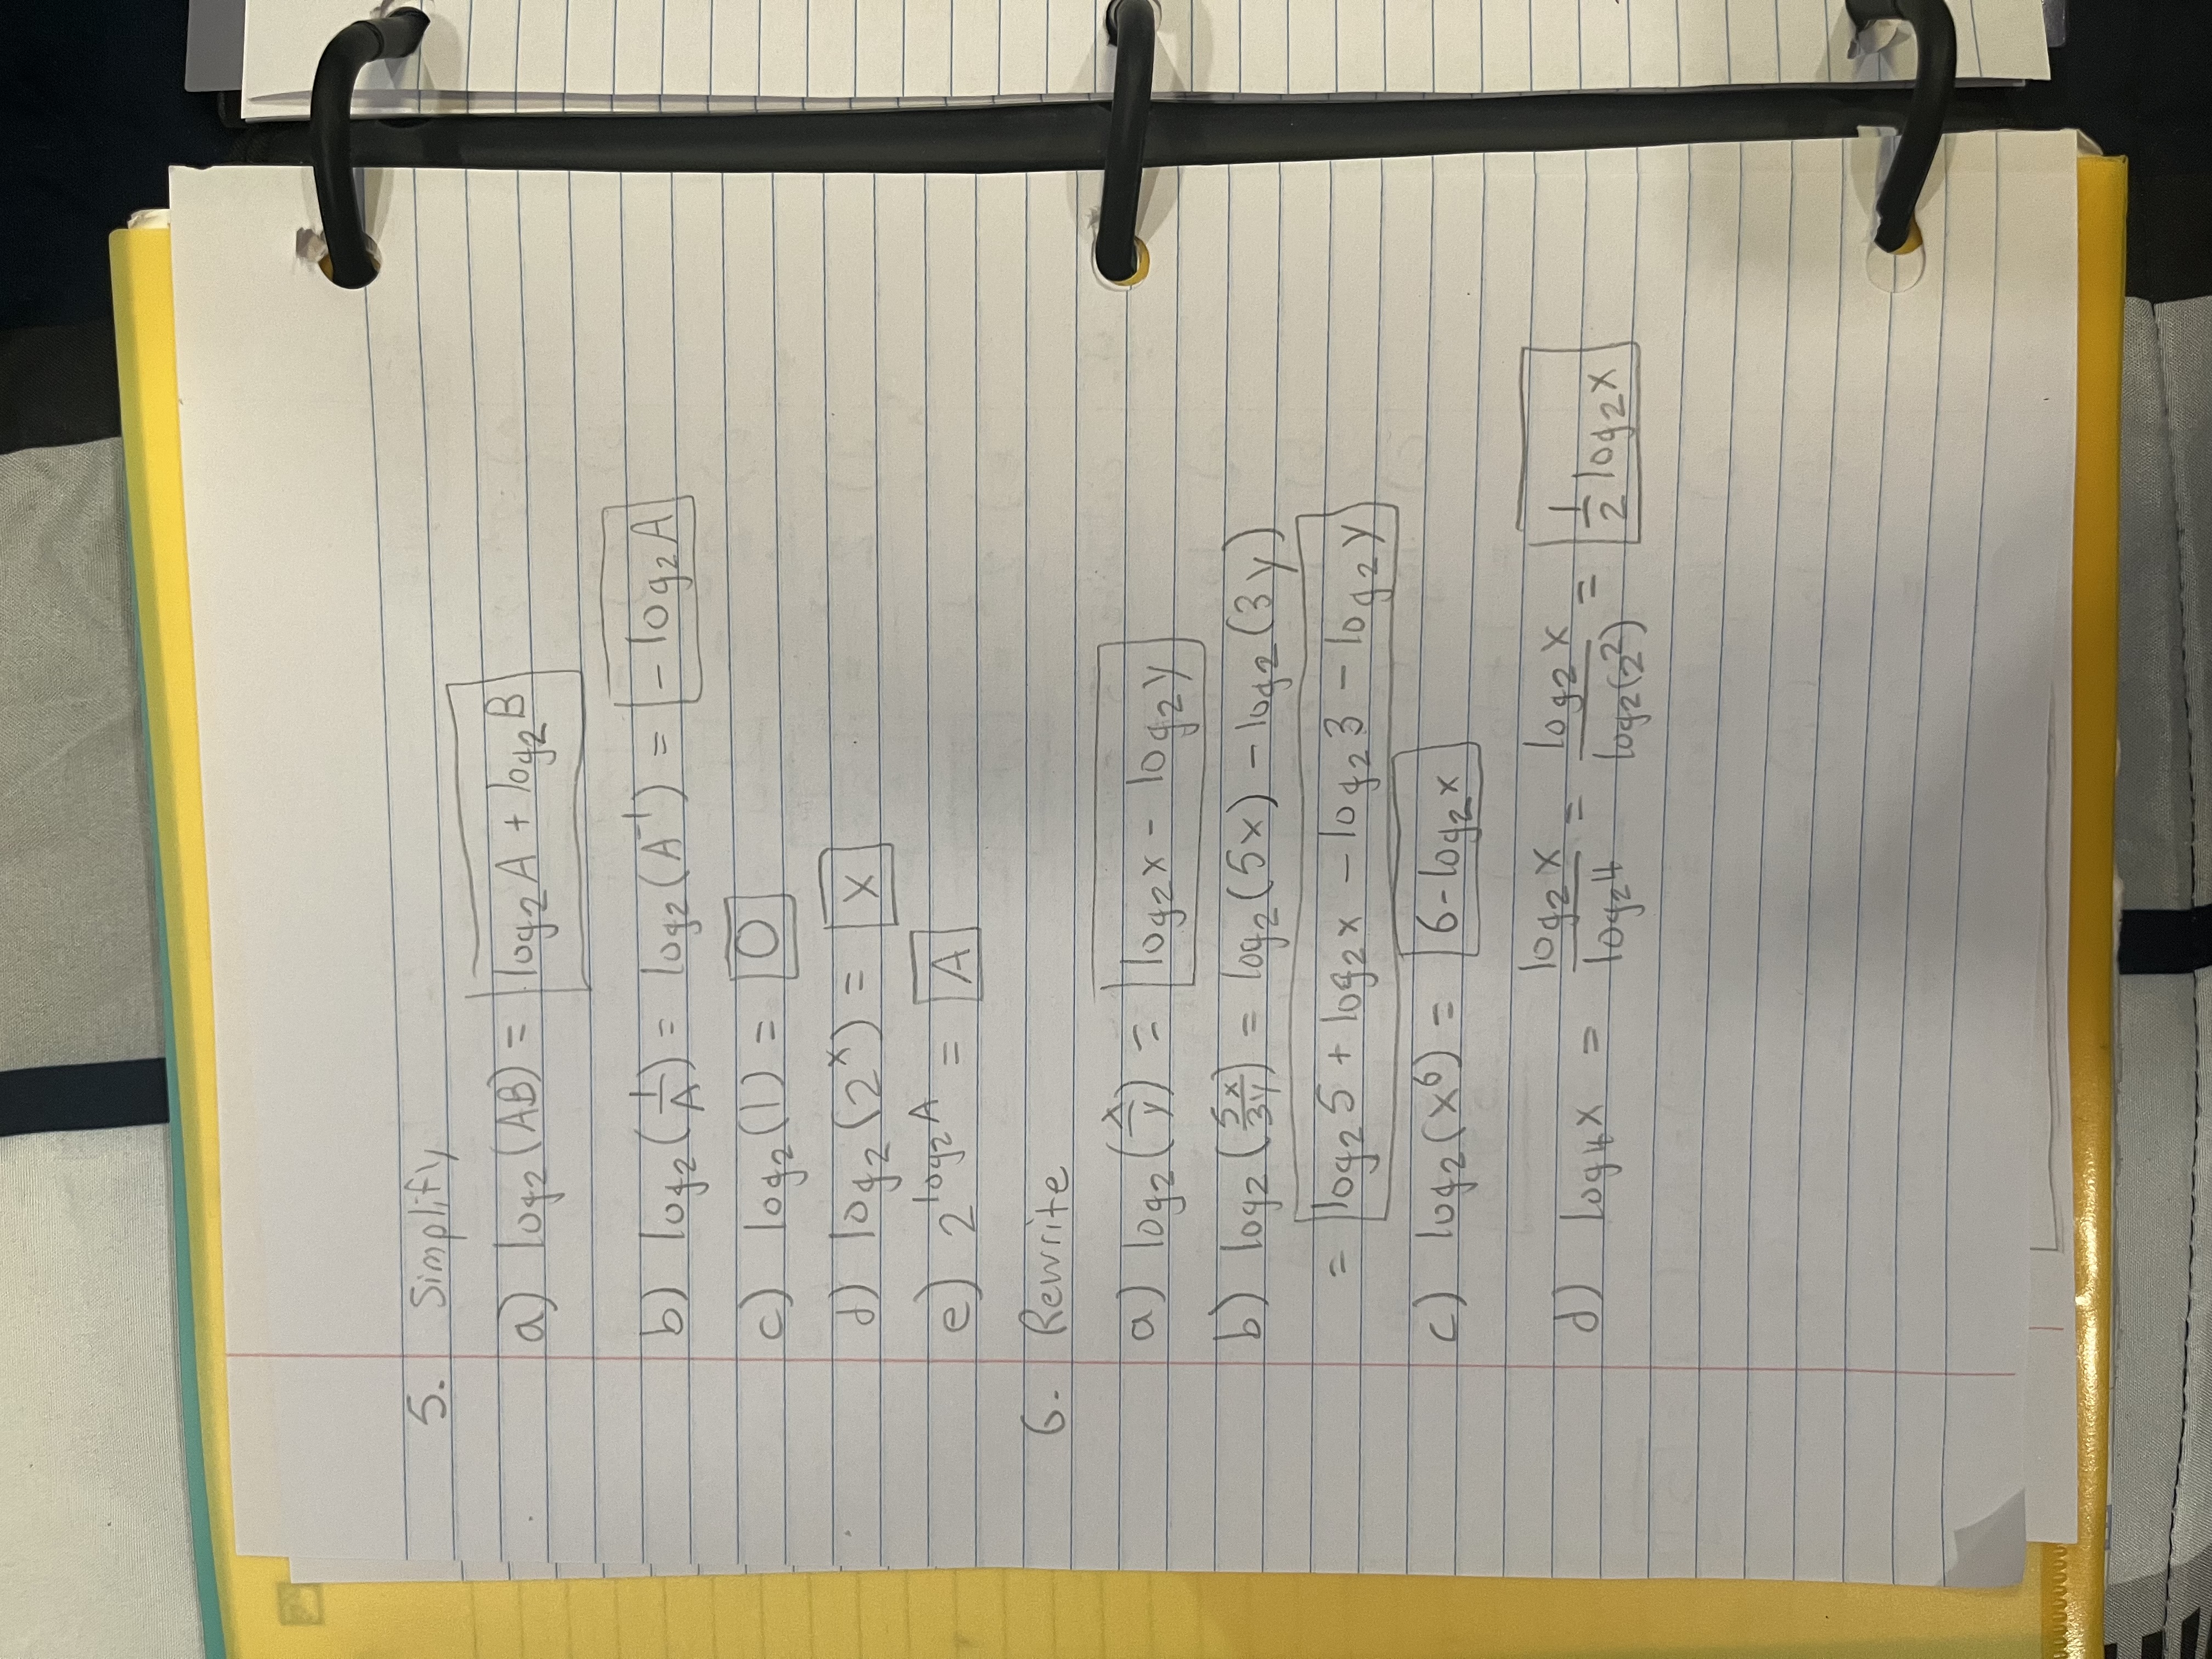 5. Simplify
a) log₂(AB) = log₂A + log₂B
b) log₂(1/A) = log₂(A⁻¹) = -log₂A
c) log₂(1) = 0
d) log₂(2ˣ) = x
e) 2^log₂A = A
6. Rewrite
a) log₂(x/y) = log₂x - log₂y
b) log₂(5x/3y) = log₂(5x) - log₂(3y)
= log₂5 + log₂x - log₂3 - log₂y
c) log₂(x⁶) = 6-log₂x
d) log₄x = log₂x/log₂4 = log₂x/log₂(2²) = 1/2 log₂x